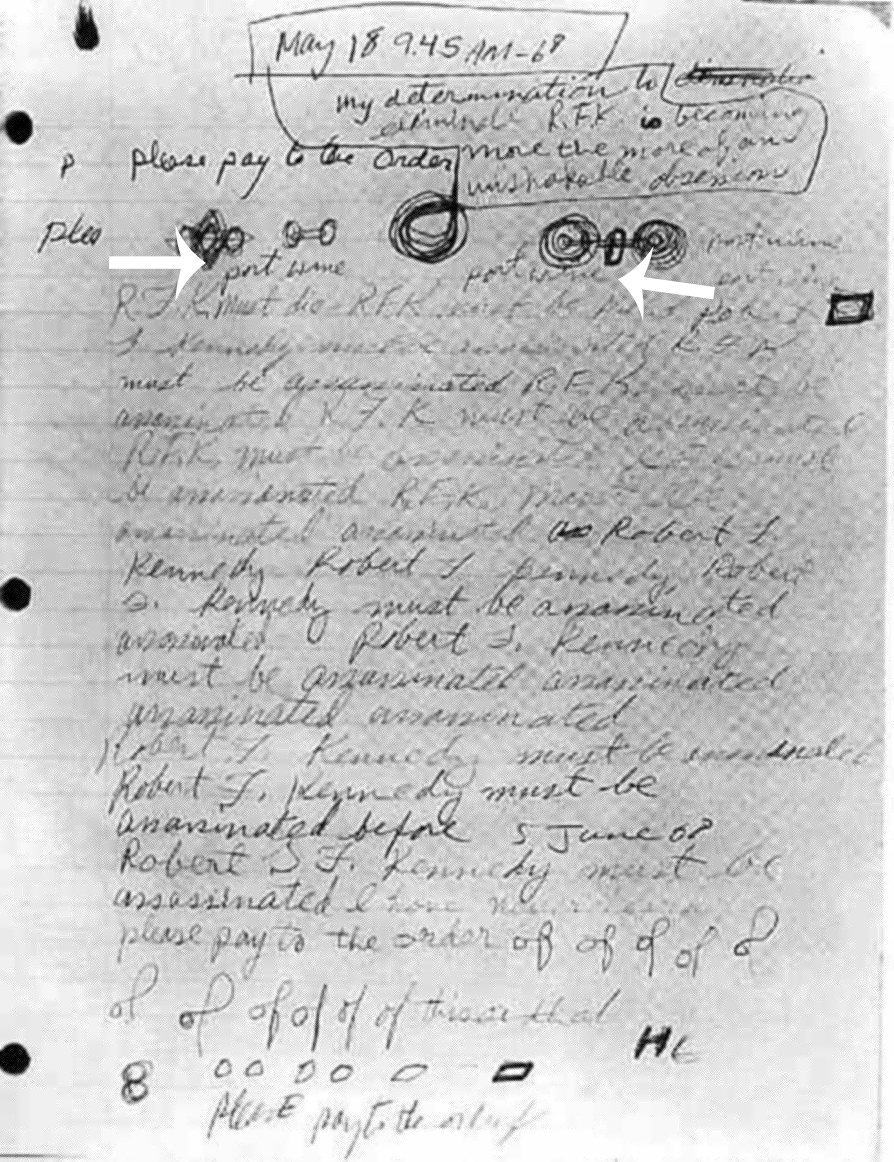 May 18 9.45 AM-68
my determination to
eliminate R.F.K. is becoming
more the more of an
unshakable obsession
P please pay to the Order
ples
port wine port wine port wine
port wine
R.F.K. must die R.F.K must be
F. Kennedy must R F K
must be assassinated R.F.K. must be
assassinated R.F.K must be assassinated
R.F.K. must be assassinated R.F.K. must
be assassinated R.F.K. must be
assassinated assassinated Robert F.
Kennedy Robert F Kennedy Robert
F. Kennedy must be assassinated
assassinated Robert F. Kennedy
must be assassinated assassinated
assassinated assassinated
Robert F. Kennedy must be assassinated
Robert F. Kennedy must be
assassinated before 5 June 68
Robert F. Kennedy must be
assassinated I have never
please pay to the order of of of of of
of of of of of of this or that
8
please pay to the order of